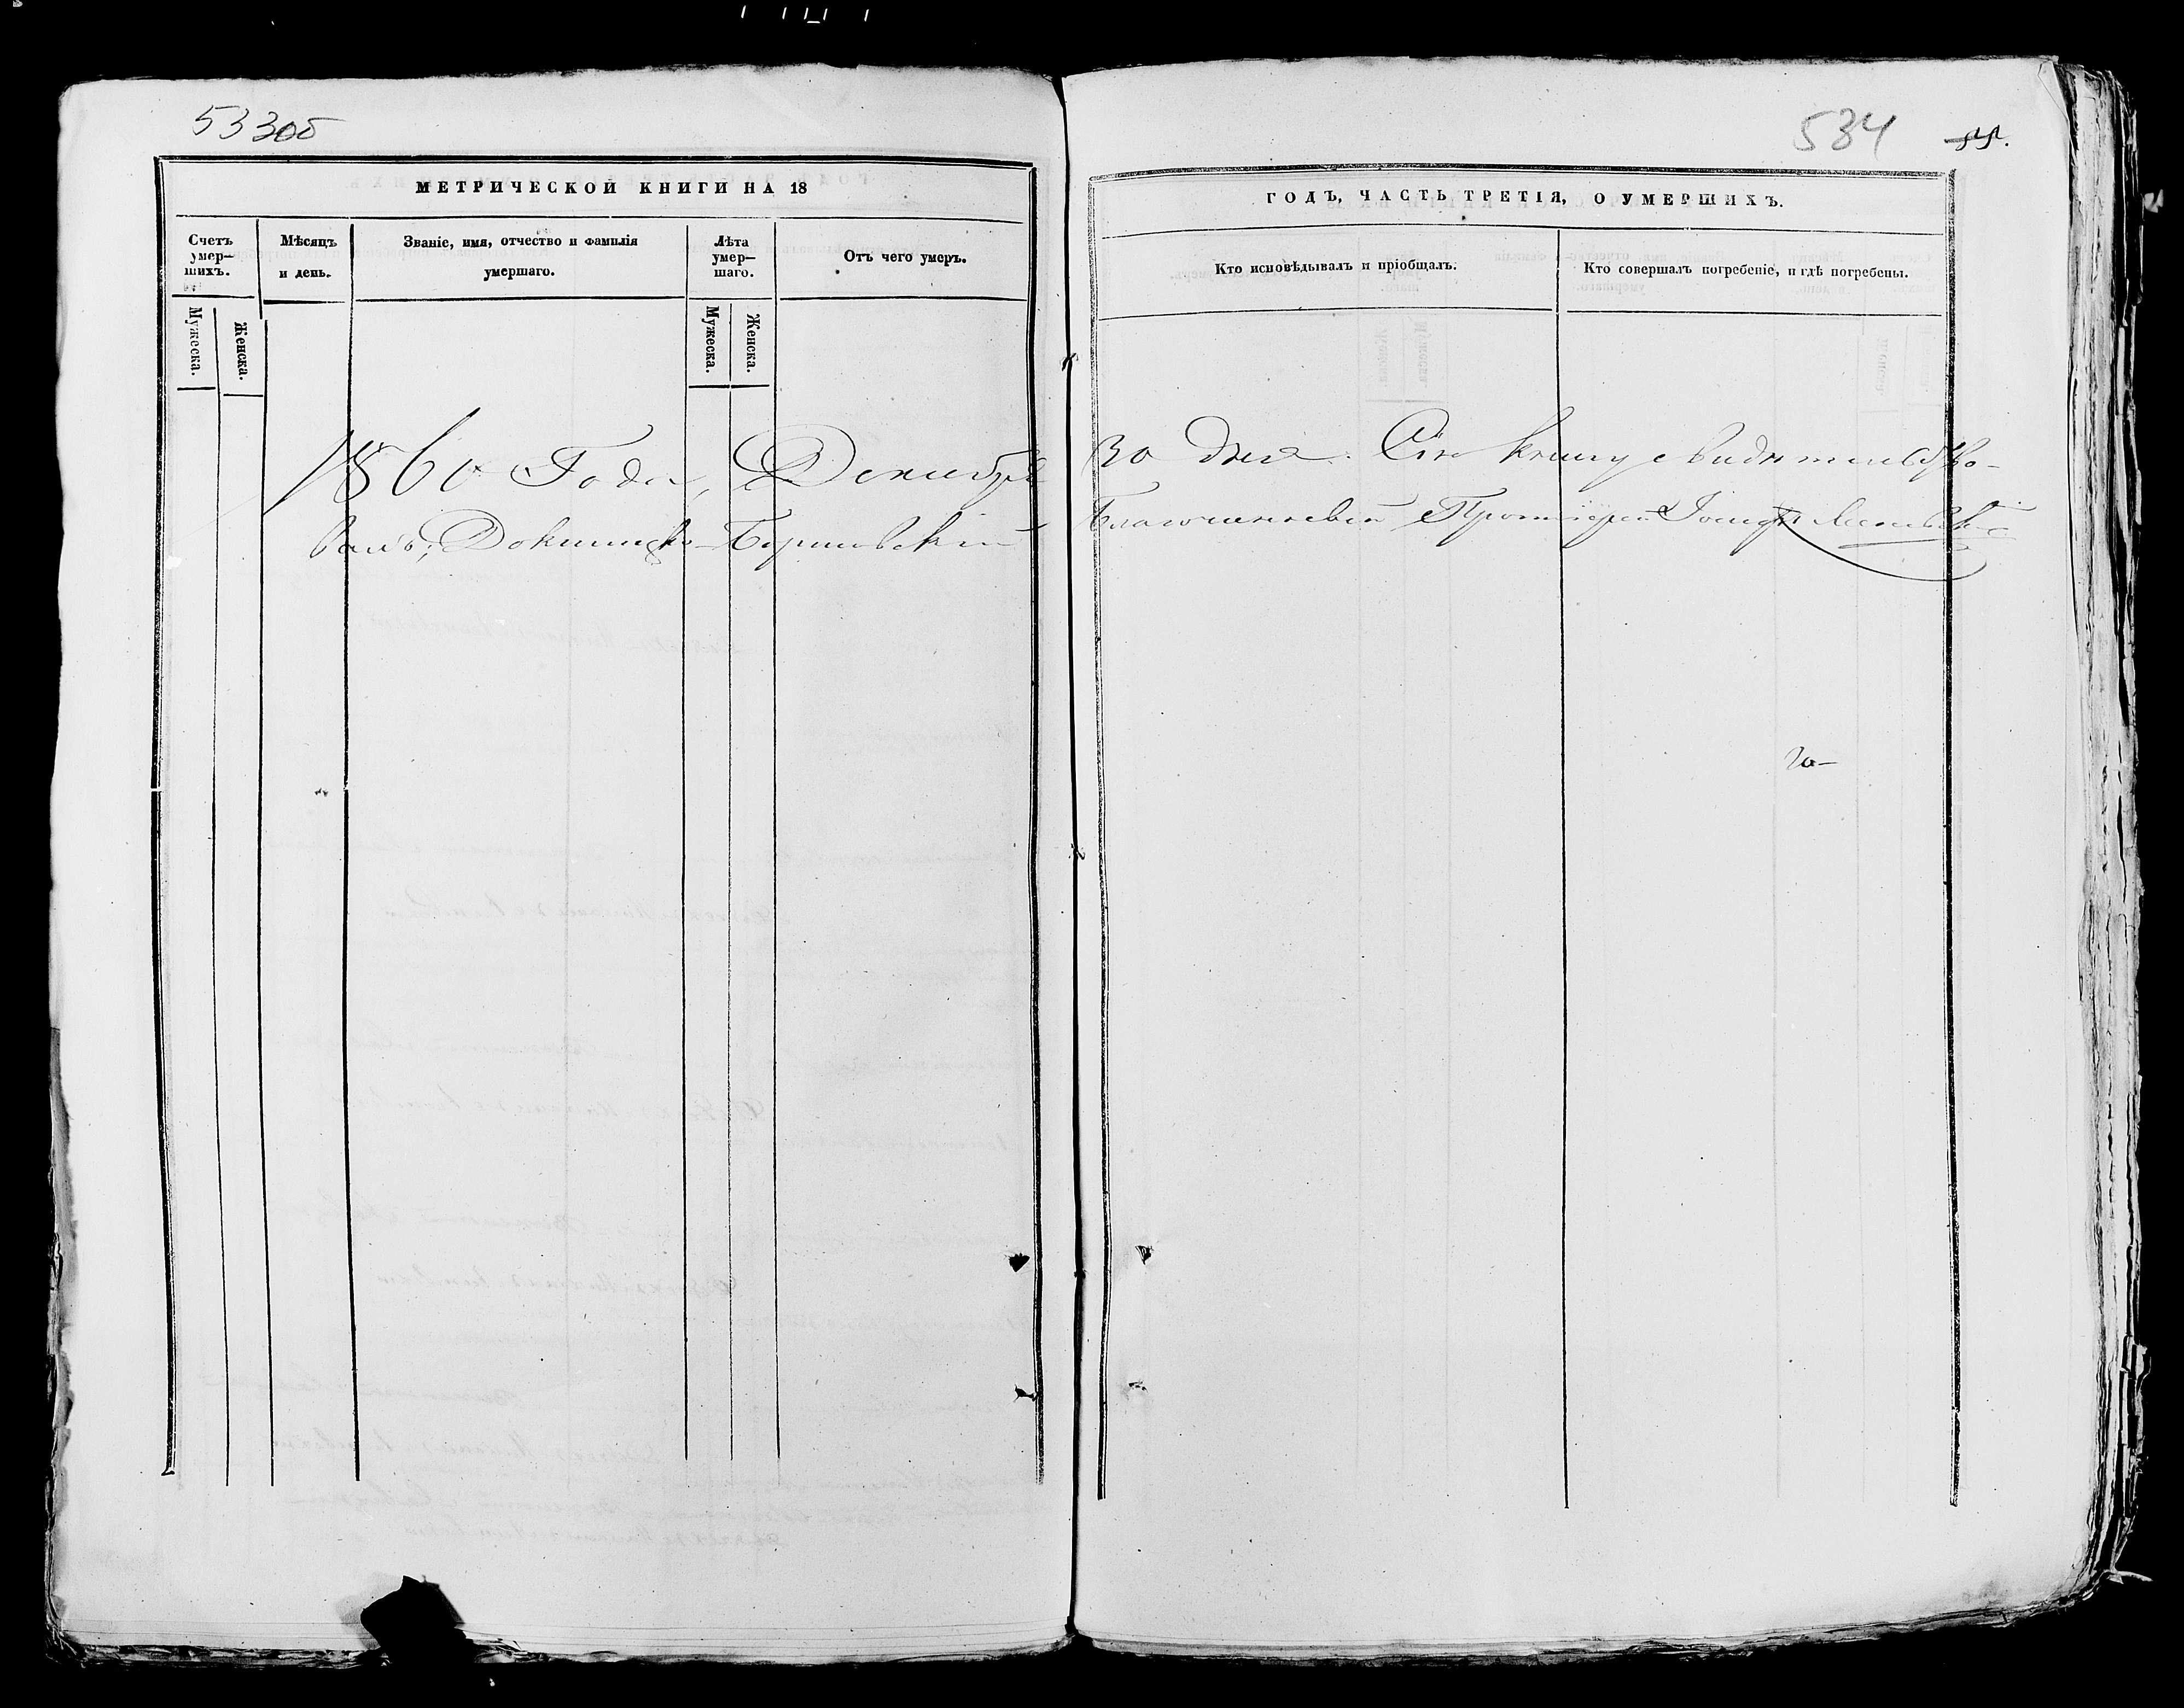 533об
МЕТРИЧЕСКОЙ КНИГИ НА 18
Счетъ умер-шихъ.
Мѣсяцъ и день.
Званіе, имя, отчество и фамилія умершаго.
Лѣта умер-шаго.
Отъ чего умеръ.
Мужеска.
Женска.
Мужеска.
Женска.
1860 Года, Декабря
валъ; Докшицко-Борисовскій
534
ГОДЪ, ЧАСТЬ ТРЕТІЯ, О УМЕРШИХЪ.
Кто исповѣдывалъ и пріобщалъ.
Кто совершалъ погребеніе, и гдѣ погребены.
30 дня. Сію книгу свидѣтельство-
Благочинный Протоіерей